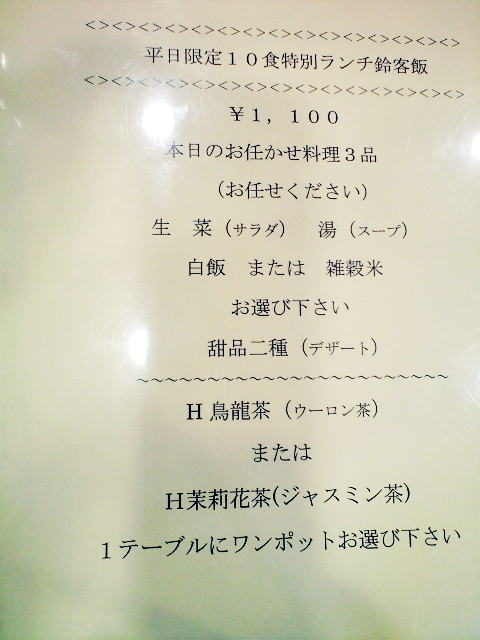 <><><><><><><><><><><><><>
平日限定１０食特別ランチ鈴客飯
<><><><><><><><><><><><><>
￥１，１００
本日のお任かせ料理３品
（お任せください）
生　菜（サラダ）　湯（スープ）
白飯　または　雑穀米
お選び下さい
甜品二種（デザート）
~~~~~~~~~~~~~~~~~~~~~~
H 鳥龍茶（ウーロン茶）
または
H茉莉花茶(ジャスミン茶)
１テーブルにワンポットお選び下さい